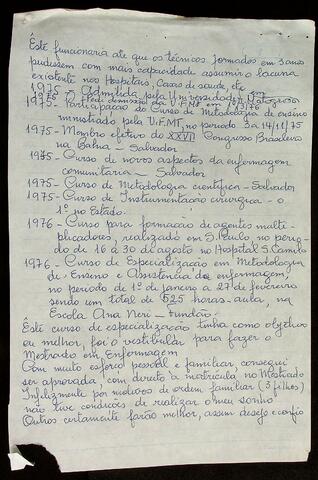 Este funcionaria até que os técnicos formados em 3 anos
pudessem com mais capacidade assumir a lacuna
existente nos Hospitais, Casas de saúde, etc
1975 - Admitida pela Universidade
1976 - Pedi demissão da U.F.MT em
1975 - Participação do Curso de Metodologia de ensino
ministrado pela U.F.MT, no período 3 a 14/11/75
1975 - Membro efetivo do XXVII Congresso Brasileiro
na Bahia - Salvador
1975 - Curso de novos aspectos da enfermagem
comunitária - Salvador
1975 - Curso de Metodologia científica - Salvador
1975 - Curso de Instrumentação cirúrgica - o
1º no Estado.
1976 - Curso para formação de agentes multi-
plicadores, realizado em S. Paulo no perío-
do de 16 a 30 de agosto no Hospital S. Camilo
1976 - Curso de Especialização em Metodologia
de Ensino e Assistência de enfermagem
no período de 1º de janeiro a 27 de fevereiro
sendo um total de 525 horas-aula, na
Escola Ana Neri - fundão.
Este curso de especialização tinha como objetivo
ou melhor, foi o vestibular para fazer o
Mestrado em Enfermagem
Com muito esforço pessoal e familiar, consegui
ser aprovada, com direito à matrícula no Mestrado
Infelizmente por motivos de ordem familiar (3 filhos)
não tive condições de realizar o meu sonho
Outros certamente farão melhor, assim desejo e confio